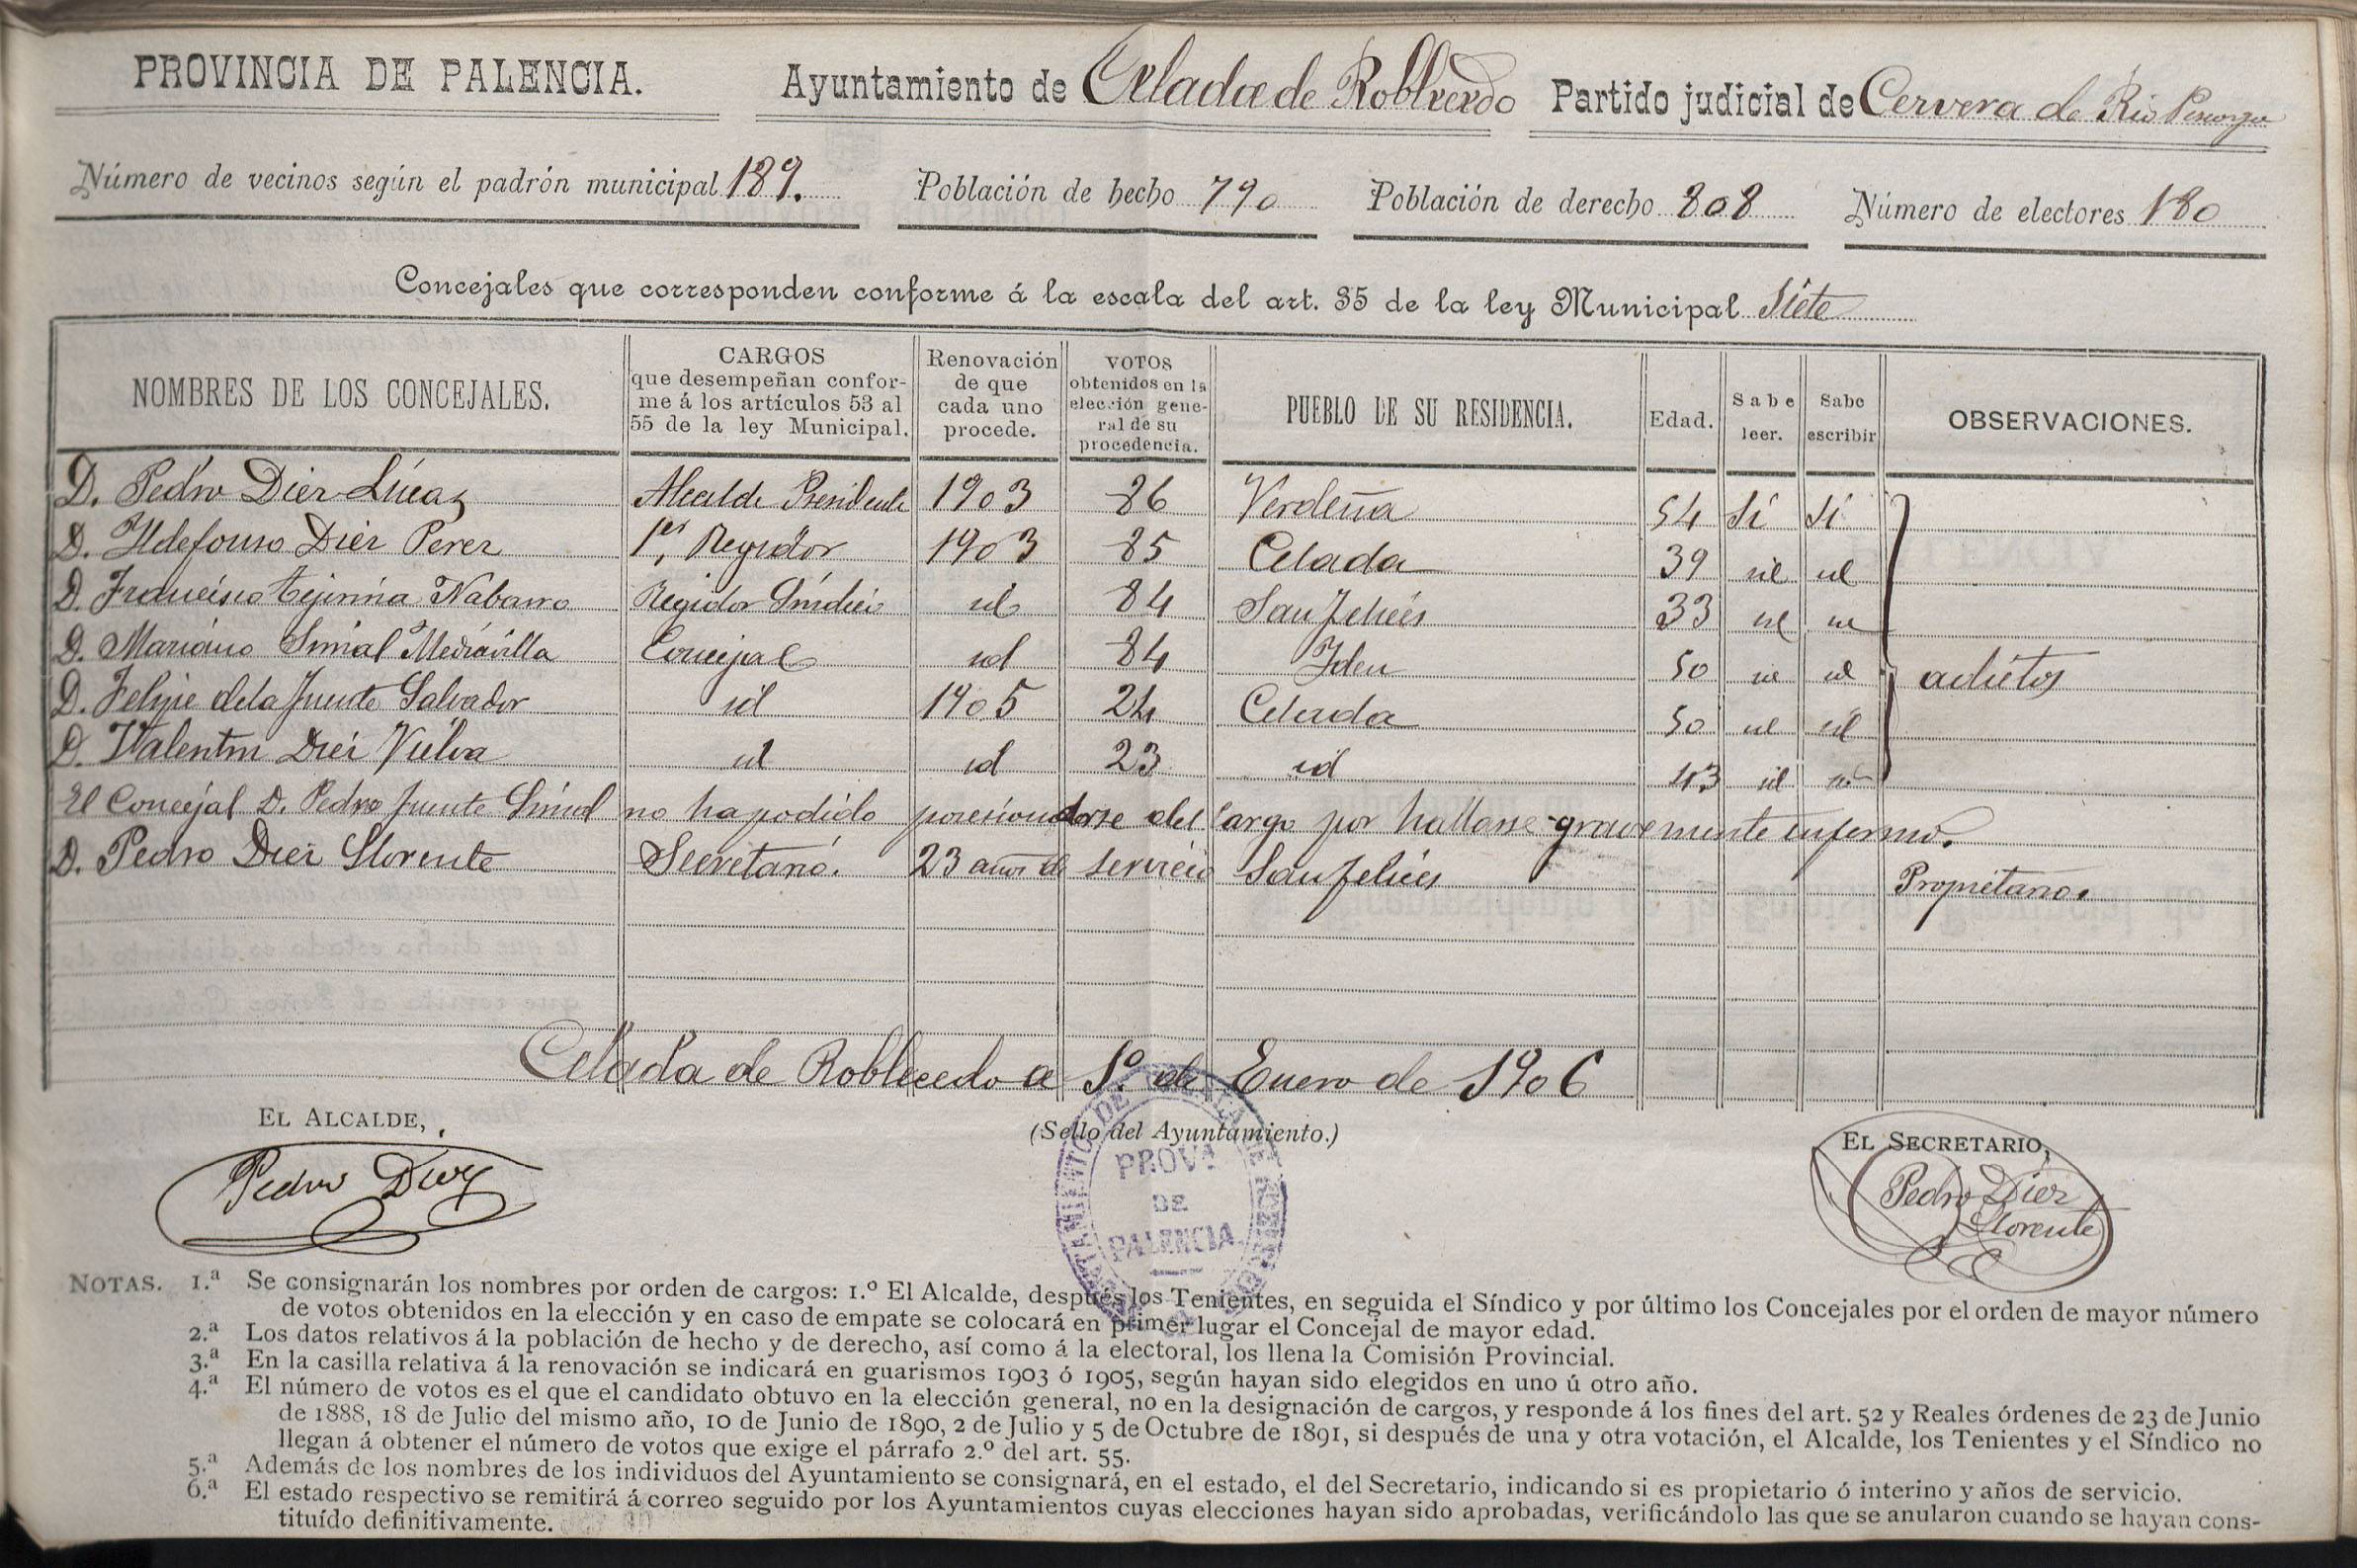 PROVINCIA DE PALENCIA. Ayuntamiento de Celada de Roblecedo Partido judicial de Cervera de Rio Pisuerga
Número de vecinos según el padrón municipal 189. Población de hecho 790 Población de derecho 808 Número de electores 180
Concejales que corresponden conforme á la escala del art. 35 de la ley Municipal Siete
NOMBRES DE LOS CONCEJALES. CARGOS que desempeñan conforme á los artículos 53 al 55 de la ley Municipal. Renovación de que cada uno procede. VOTOS obtenidos en la elección general de su procedencia. PUEBLO DE SU RESIDENCIA. Edad. Sabe leer. Sabe escribir OBSERVACIONES.
D. Pedro Diez Lúcas Alcalde Presidente 1903 86 Verdeña 54 Sí Sí
D. Ildefonso Diez Perez 1er Regidor 1903 85 Celada 39 id id
D. Francisco Tejerina Nabarro Regidor Síndico id 84 San Felices 33 id id
D. Mariano Simal Mediavilla Concejal id 84 Idem 50 id id adictos
D. Felipe de la fuente Salvador id 1905 24 Celada 50 id id
D. Valentin Diez Vielba id id 23 id 43 id id
El Concejal D. Pedro fuente Simal no ha podido posesionarse del cargo por hallarse gravemente enfermo.
D. Pedro Diez Llorente Secretario. 23 años de servicio San felices Propietario.
Celada de Roblecedo a 1º de Enero de 1906
EL ALCALDE,
(Sello del Ayuntamiento.)
EL SECRETARIO,
Pedro Diez
AYUNTAMIENTO DE
PROVA
DE
PALENCIA
Pedro Diez
Llorente
NOTAS. 1.ª Se consignarán los nombres por orden de cargos: 1.º El Alcalde, después los Tenientes, en seguida el Síndico y por último los Concejales por el orden de mayor número
de votos obtenidos en la elección y en caso de empate se colocará en primer lugar el Concejal de mayor edad.
2.ª Los datos relativos á la población de hecho y de derecho, así como á la electoral, los llena la Comisión Provincial.
3.ª En la casilla relativa á la renovación se indicará en guarismos 1903 ó 1905, según hayan sido elegidos en uno ú otro año.
4.ª El número de votos es el que el candidato obtuvo en la elección general, no en la designación de cargos, y responde á los fines del art. 52 y Reales órdenes de 23 de Junio
de 1888, 18 de Julio del mismo año, 10 de Junio de 1890, 2 de Julio y 5 de Octubre de 1891, si después de una y otra votación, el Alcalde, los Tenientes y el Síndico no
llegan á obtener el número de votos que exige el párrafo 2.º del art. 55.
5.ª Además de los nombres de los individuos del Ayuntamiento se consignará, en el estado, el del Secretario, indicando si es propietario ó interino y años de servicio.
6.ª El estado respectivo se remitirá á correo seguido por los Ayuntamientos cuyas elecciones hayan sido aprobadas, verificándolo las que se anularon cuando se hayan cons-
tituído definitivamente.